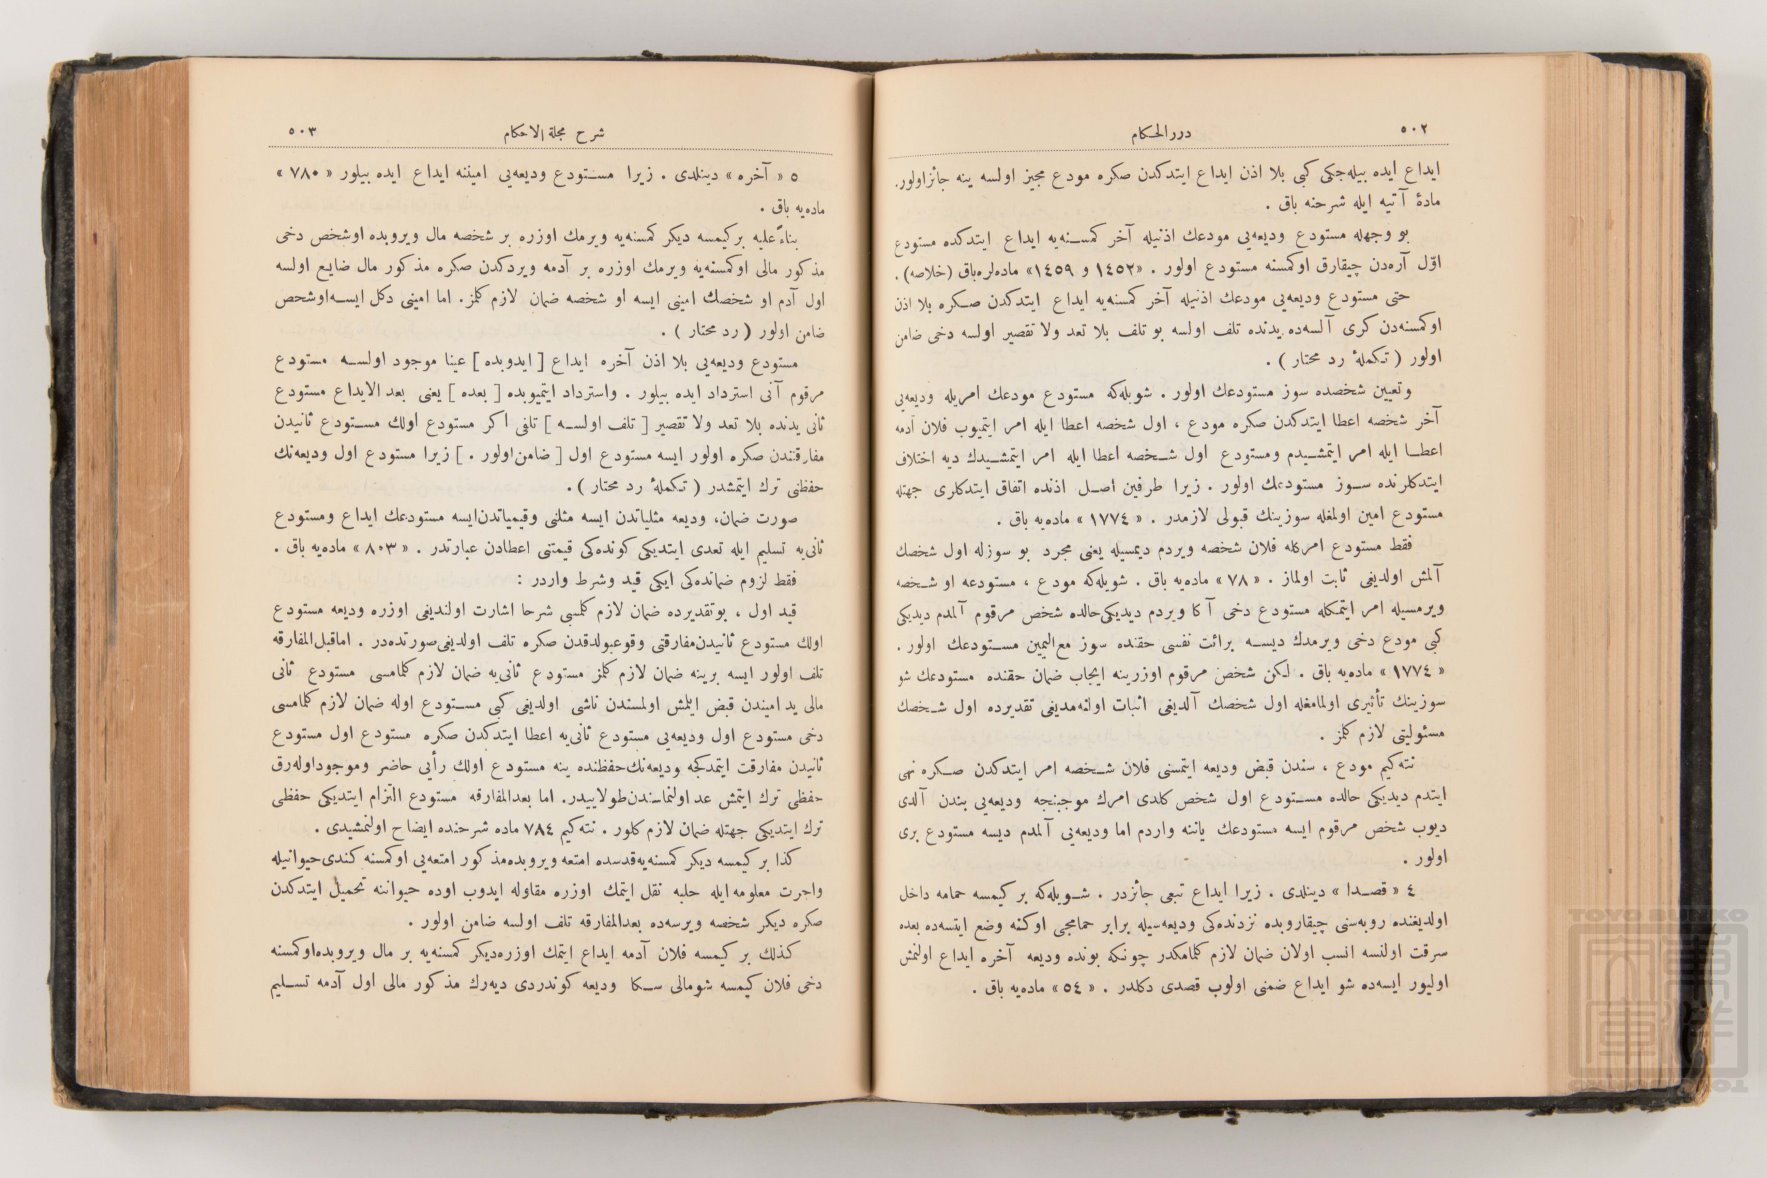 ٥٠٢
دررالحكام
ايداع ايده بيله‌جكى كبى بلا اذن ايداع ايتدكدن صكره مودع مجيز اولسه ينه جائزاولور.
مادۀ آتيه ايله شرحنه باق .
بو وجهله مستودع وديعه‌يى مودعك اذنيله آخر كمسنه‌يه ايداع ايتدكده مستودع
اوّل آره‌دن چيقارق اوكمسنه مستودع اولور . «١٤٥٢ و ١٤٥٩» ماده‌لره‌باق (خلاصه) .
حتى مستودع وديعه‌يى مودعك اذنيله آخر كمسنه‌يه ايداع ايتدكدن صكره بلا اذن
اوكمسنه‌دن كرى آلسه‌ده يدنده تلف اولسه بو تلف بلا تعد ولا تقصير اولسه دخى ضامن
اولور ( تكملۀ رد محتار ) .
وتعيين شخصده سوز مستودعك اولور . شويله‌كه مستودع مودعك امريله وديعه‌يى
آخر شخصه اعطا ايتدكدن صكره مودع ، اول شخصه اعطا ايله امر ايتميوب فلان آدمه
اعطا ايله امر ايتمشيدم ومستودع اول شخصه اعطا ايله امر ايتمشيدك ديه اختلاف
ايتدكلرنده سوز مستودعك اولور . زيرا طرفين اصل اذنده اتفاق ايتدكلرى جهتله
مستودع امين اولمغله سوزينك قبولى لازمدر . « ١٧٧٤ » ماده‌يه باق .
فقط مستودع امركله فلان شخصه ويردم ديمسيله يعنى مجرد بو سوزله اول شخصك
آلمش اولديغى ثابت اولماز . « ٧٨ » ماده‌يه باق . شويله‌كه مودع ، مستودعه او شخصه
ويرمسيله امر ايتمكله مستودع دخى آكا ويردم ديديكى‌حالده شخص مرقوم آلمدم ديديكى
كبى مودع دخى ويرمدك ديسه برائت نفسى حقنده سوز مع‌اليمين مستودعك اولور .
« ١٧٧٤ » ماده‌يه باق . لكن شخص مرقوم اوزرينه ايجاب ضمان حقنده مستودعك شو
سوزينك تأثيرى اولمامغله اول شخصك آلديغى اثبات اولنه‌مديغى تقديرده اول شخصك
مسئوليتى لازم كلمز .
نته‌كيم مودع ، سندن قبض وديعه ايتمسنى فلان شخصه امر ايتدكدن صكره نهى
ايتدم ديديكى حالده مستودع اول شخص كلدى امرك موجبنجه وديعه‌يى بندن آلدى
ديوب شخص مرقوم ايسه مستودعك ياننه واردم اما وديعه‌يى آلمدم ديسه مستودع برى
اولور .
٤ « قصدا » دينلدى . زيرا ايداع تبعى جائزدر . شويله‌كه بر كيمسه حمامه داخل
اولديغنده روبه‌سنى چيقاروبده نزدنده‌كى وديعه‌سيله برابر حمامجى اوكنه وضع ايتسه‌ده بعده
سرقت اولنسه انسب اولان ضمان لازم كلمامكدر چونكه بونده وديعه آخره ايداع اولنمش
اوليور ايسه‌ده شو ايداع ضمنى اولوب قصدى دكلدر . « ٥٤ » ماده‌يه باق .
شرح مجلة الاحكام
٥٠٣
٥ « آخره » دينلدى . زيرا مستودع وديعه‌يى اميننه ايداع ايده بيلور « ٧٨٠ »
ماده‌يه باق .
بناءً عليه بركيمسه ديكر كمسنه‌يه ويرمك اوزره بر شخصه مال ويروبده اوشخص دخى
مذكور مالى اوكمسنه‌يه ويرمك اوزره بر آدمه ويردكدن صكره مذكور مال ضايع اولسه
اول آدم او شخصك امينى ايسه او شخصه ضمان لازم كلمز. اما امينى دكل ايسه‌اوشخص
ضامن اولور ( رد محتار ) .
مستودع وديعه‌يى بلا اذن آخره ايداع [ ايدوبده ] عينا موجود اولسه مستودع
مرقوم آنى استرداد ايده بيلور . واسترداد ايتميوبده [ بعده ] يعنى بعد الايداع مستودع
ثانى يدنده بلا تعد ولا تقصير [ تلف اولسه ] تلفى اكر مستودع اولك مستودع ثانيدن
مفارقتندن صكره اولور ايسه مستودع اول [ ضامن‌اولور . ] زيرا مستودع اول وديعه‌نك
حفظنى ترك ايتمشدر ( تكملۀ رد محتار ) .
صورت ضمان، وديعه مثلياتدن ايسه مثلنى وقيمياتدن‌ايسه مستودعك ايداع ومستودع
ثانى‌يه تسليم ايله تعدى ايتديكى كونده‌كى قيمتنى اعطادن عبارتدر . « ٨٠٣ » ماده‌يه باق .
فقط لزوم ضمانده‌كى ايكى قيد وشرط واردر :
قيد اول ، بوتقديرده ضمان لازم كلمسى شرحا اشارت اولنديغى اوزره وديعه مستودع
اولك مستودع ثانيدن‌مفارقتى وقوعبولدقدن صكره تلف اولديغى‌صورتده‌در . اماقبل‌المفارقه
تلف اولور ايسه برينه ضمان لازم كلمز مستودع ثانى‌يه ضمان لازم كلمامسى مستودع ثانى
مالى يد اميندن قبض ايلمش اولمسندن ناشى اولديغى كبى مستودع اوله ضمان لازم كلمامسى
دخى مستودع اول وديعه‌يى مستودع ثانى‌يه اعطا ايتدكدن صكره مستودع اول مستودع
ثانيدن مفارقت ايتمدكجه وديعه‌نك‌حفظنده ينه مستودع اولك رأيى حاضر وموجوداوله‌رق
حفظى ترك ايتمش عد اولنماسندن‌طولاييدر. اما بعدالمفارقه مستودع التزام ايتديكى حفظى
ترك ايتديكى جهتله ضمان لازم كلور . نته‌كيم ٧٨٤ ماده شرحنده ايضاح اولنمشيدى .
كذا بر كيمسه ديكر كمسنه‌يه‌قدسده امتعه ويروبده‌مذكور امتعه‌يى اوكمسنه كندى‌حيوانيله
واجرت معلومه‌ايله حلبه نقل ايتمك اوزره مقاوله ايدوب اوده حيواننه تحميل ايتدكدن
صكره ديكر شخصه ويرسه‌ده بعدالمفارقه تلف اولسه ضامن اولور .
كذلك بر كيمسه فلان آدمه ايداع ايتمك اوزره‌ديكر كمسنه‌يه بر مال ويروبده‌اوكمسنه
دخى فلان كيمسه شومالى سكا وديعه كوندردى ديه‌رك مذكور مالى اول آدمه تسليم
TOYO BUNKO